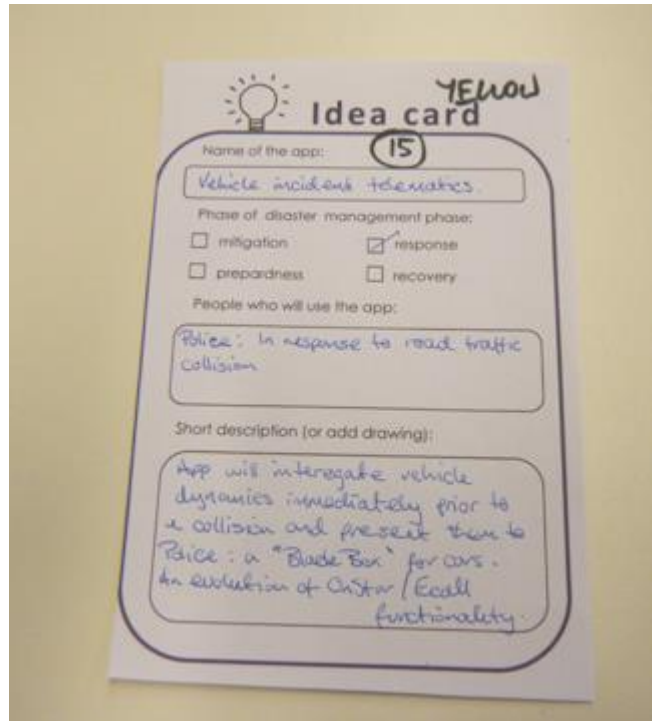 YELLOW
Idea card
Name of the app:
15
Vehicle incident telematics.
Phase of disaster management phase:
mitigation
response
prepardness
recovery
People who will use the app:
Police: In response to road traffic
collision
Short description (or add drawing):
App will interegate vehicle
dynamics immediately prior to
a collision and present them to
Police: a "Black Box" for cars.
An evolution of OnStar/Ecall
functionality.